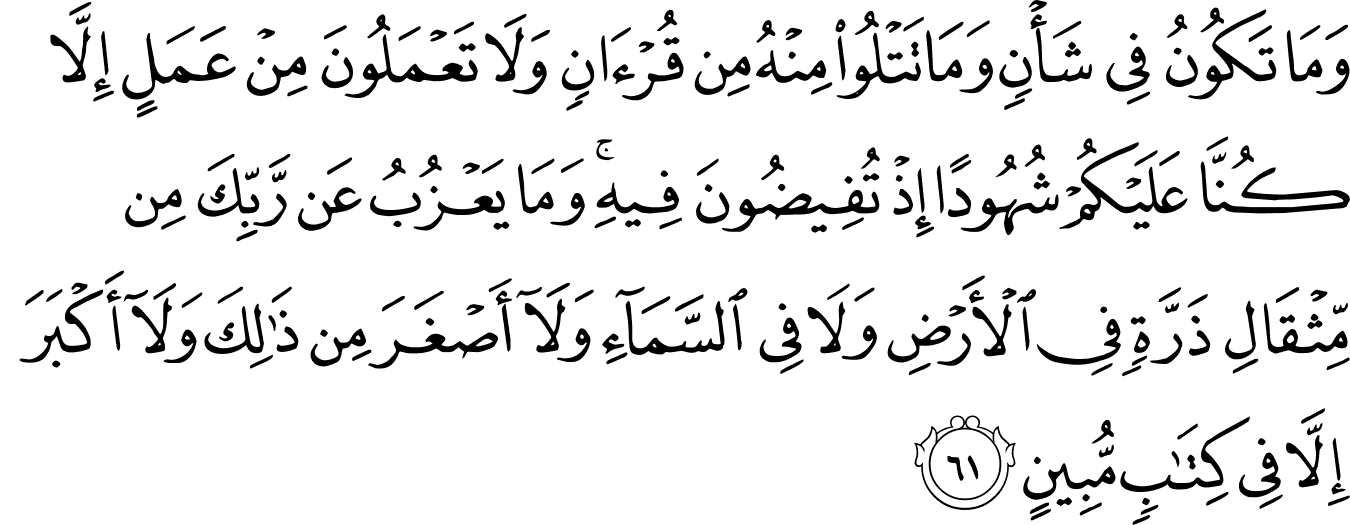 وَمَا تَكُونُ فِى شَأْنٍ وَمَا تَتْلُوا۟ مِنْهُ مِن قُرْءَانٍ وَلَا تَعْمَلُونَ مِنْ عَمَلٍ إِلَّا
كُنَّا عَلَيْكُمْ شُهُودًا إِذْ تُفِيضُونَ فِيهِ ۚ وَمَا يَعْزُبُ عَن رَّبِّكَ مِن
مِّثْقَالِ ذَرَّةٍ فِى ٱلْأَرْضِ وَلَا فِى ٱلسَّمَآءِ وَلَآ أَصْغَرَ مِن ذَٰلِكَ وَلَآ أَكْبَرَ
إِلَّا فِى كِتَٰبٍ مُّبِينٍ ٦١